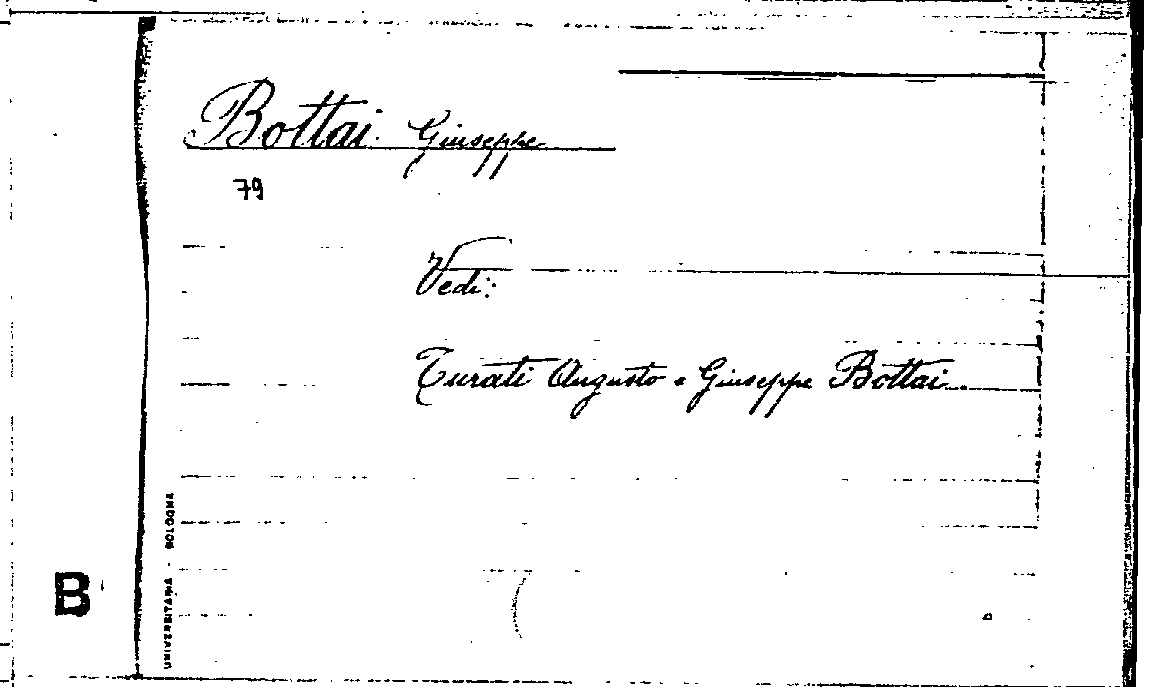 Bottai Giuseppe
79
Vedi:
Turati Augusto e Giuseppe Bottai.
B
UNIVERSITARIA - BOLOGNA